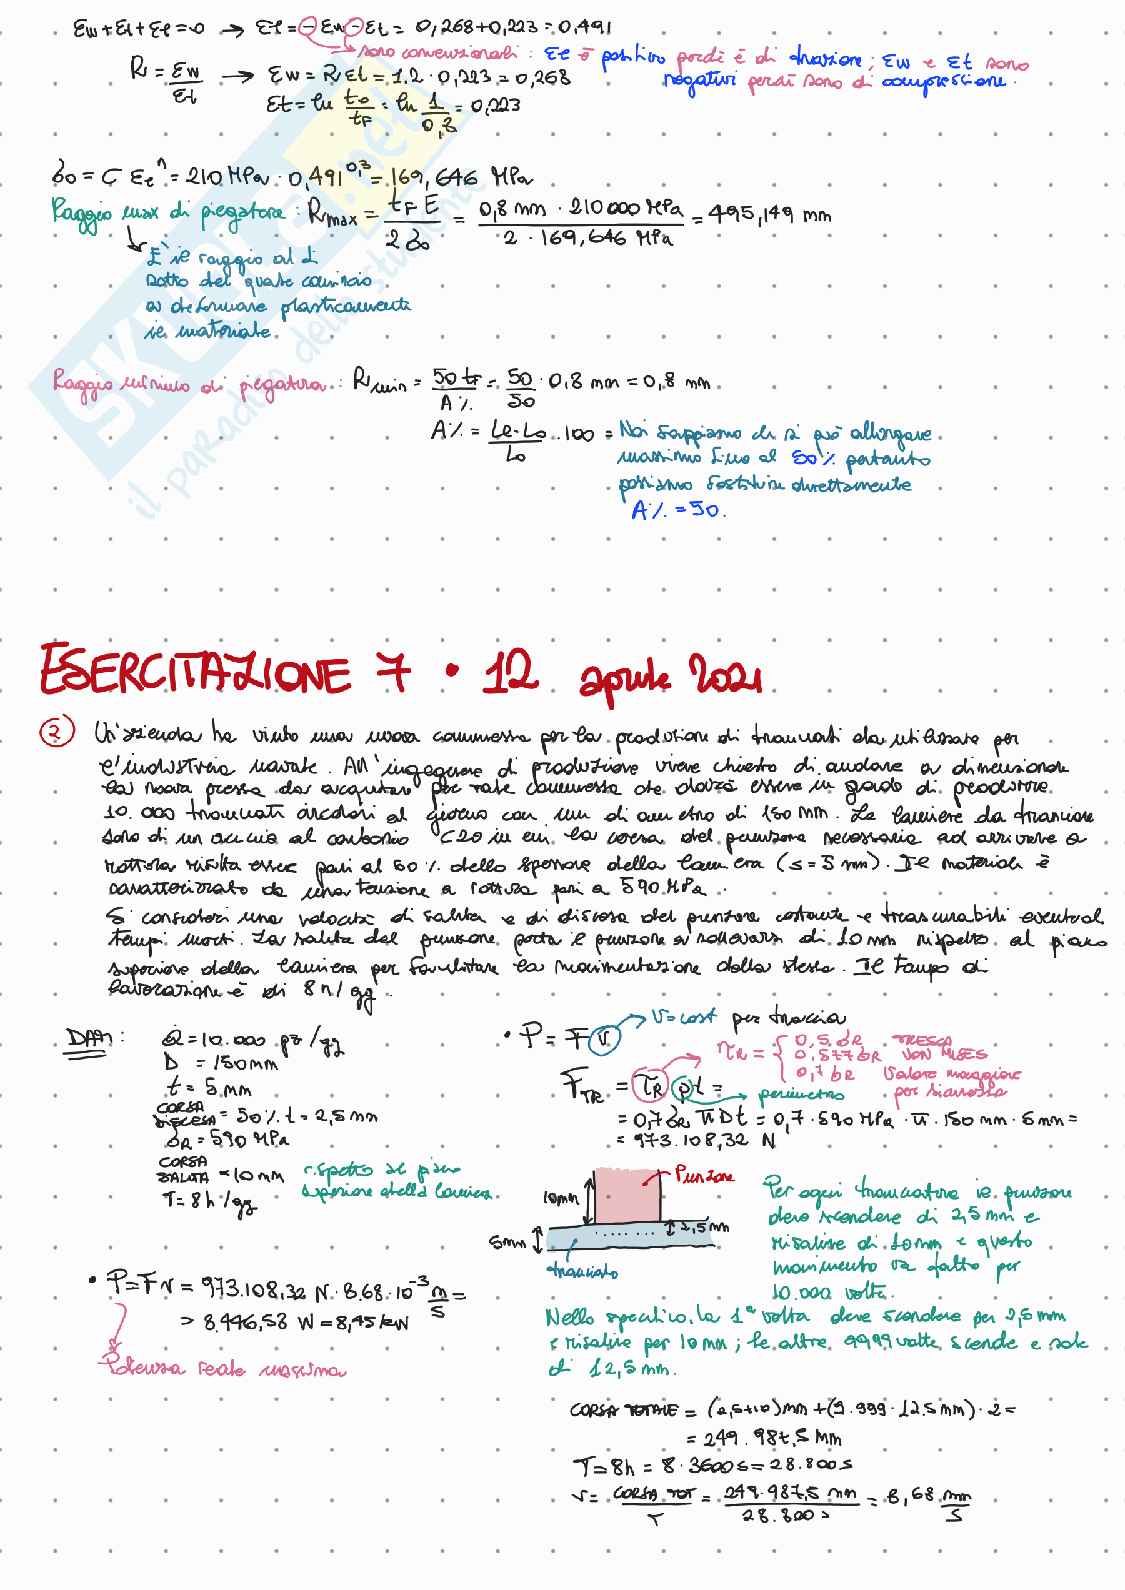 εw+εt+εl=0 → εl=-εw-εt= 0,268+0,223=0,491
sono convenzionali: εl è positivo perché è di trazione; εw e εt sono
R = εw/εt → εw = R εt = 1,2 · 0,223 = 0,268
negativi perché sono di compressione.
εt = ln t0/tF = ln 1/0,8 = 0,223
σ0 = C εl^n = 210 MPa · 0,491^0,3 = 169,646 MPa
Raggio max di piegatura: Rmax = tF E / 2σ0 = 0,8 mm · 210000 MPa / 2 · 169,646 MPa = 495,149 mm
È il raggio al di
sotto del quale comincio
a deformare plasticamente
il materiale.
Raggio minimo di piegatura: Rmin = 50 tF / A% = 50/50 · 0,8 mm = 0,8 mm
A% = (Lf-L0)/L0 · 100 = Noi sappiamo che si può allungare
massimo fino al 50% pertanto
possiamo sostituire direttamente
A% = 50.
SKUOLA.net
il paradiso dello studente
ESERCITAZIONE 7 • 12 aprile 2021
② Un'azienda ha vinto una nuova commessa per la produzione di tranciati da utilizzare per
l'industria navale. All'ingegnere di produzione viene chiesto di andare a dimensionare
la nuova pressa da acquistare per tale commessa che dovrà essere in grado di produrre
10.000 tranciati circolari al giorno con un diametro di 150 mm. Le lamiere da tranciare
sono di un acciaio al carbonio C20 in cui la corsa del punzone necessaria ad arrivare a
rottura risulta esser pari al 50% dello spessore della lamiera (s=5 mm). Il materiale è
caratterizzato da una tensione a rottura pari a 590 MPa.
Si consideri una velocità di salita e di discesa del punzone costante e trascurabili eventuali
tempi morti. La salita del punzone porta il punzone a sollevarsi di 10 mm rispetto al piano
superiore della lamiera per facilitare la movimentazione della stessa. Il tempo di
lavorazione è di 8 h/gg.
DATI: Q = 10.000 pz/gg
D = 150mm
t = 5 mm
CORSA DISCESA = 50% t = 2,5 mm
σR = 590 MPa
CORSA SALITA = 10 mm rispetto al piano superiore della lamiera
T = 8h/gg
• P = F v → v=cost per trancia
τR = { 0,5 σR TRESCA
0,577 σR VON MISES
0,7 σR Valore maggiore
per sicurezza
FTR = τR p t =
perimetro
= 0,7 σR π D t = 0,7 · 590 MPa · π · 150 mm · 5 mm =
= 973.108,32 N
Punzone
10mm
2,5 mm
5mm
tranciato
Per ogni tranciatura il punzone
deve scendere di 2,5 mm e
risalire di 10mm e questo
movimento va fatto per
10.000 volte.
Nello specifico, la 1ª volta deve scendere per 2,5 mm
e risalire per 10 mm; le altre 9999 volte scende e sale
di 12,5 mm.
• P = F v = 973.108,32 N · 8,68 · 10^-3 m/s =
= 8.446,58 W = 8,45 kW
Potenza reale massima
CORSA TOTALE = (2,5+10)mm + (9.999 · 12,5 mm) · 2 =
= 249.987,5 mm
T = 8h = 8 · 3600 s = 28.800 s
v = CORSA TOT / T = 249.987,5 mm / 28.800 s = 8,68 mm/s